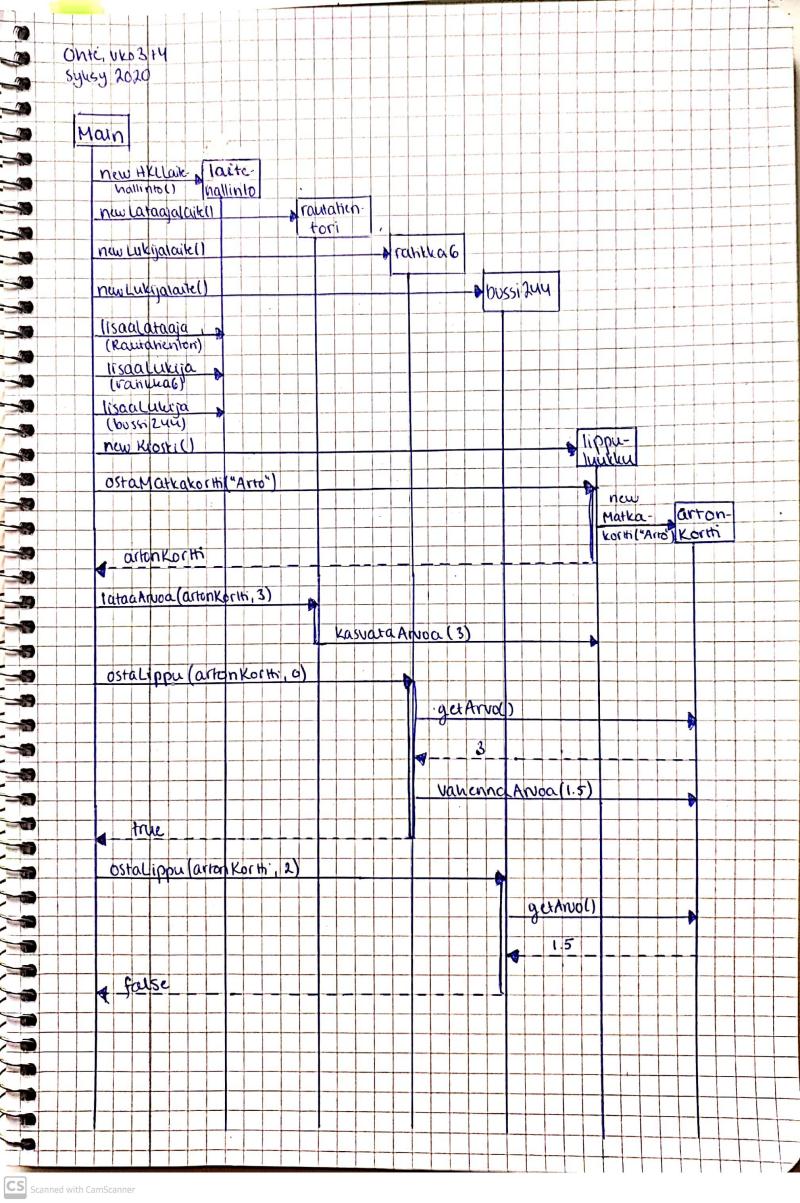 Ohte, vko3+4
Syksy 2020
Main
new HKLLaite-
hallinto()
laite-
hallinto
new Lataajalaite()
rautatien-
tori
new Lukijalaite()
ratikka6
new Lukijalaite()
bussi244
lisaaLataaja
(Rautatientori)
lisaaLukija
(ratikka6)
lisaaLukija
(bussi244)
new Kioski()
lippu-
luukku
ostaMatkakortti("Arto")
new
Matka-
kortti("Arto")
arton-
Kortti
artonKortti
lataaArvoa(artonKortti, 3)
kasvataArvoa(3)
ostaLippu(artonKortti, 0)
getArvo()
3
vahennaArvoa(1.5)
true
ostaLippu(artonKortti, 2)
getArvo()
1.5
false
CS Scanned with CamScanner